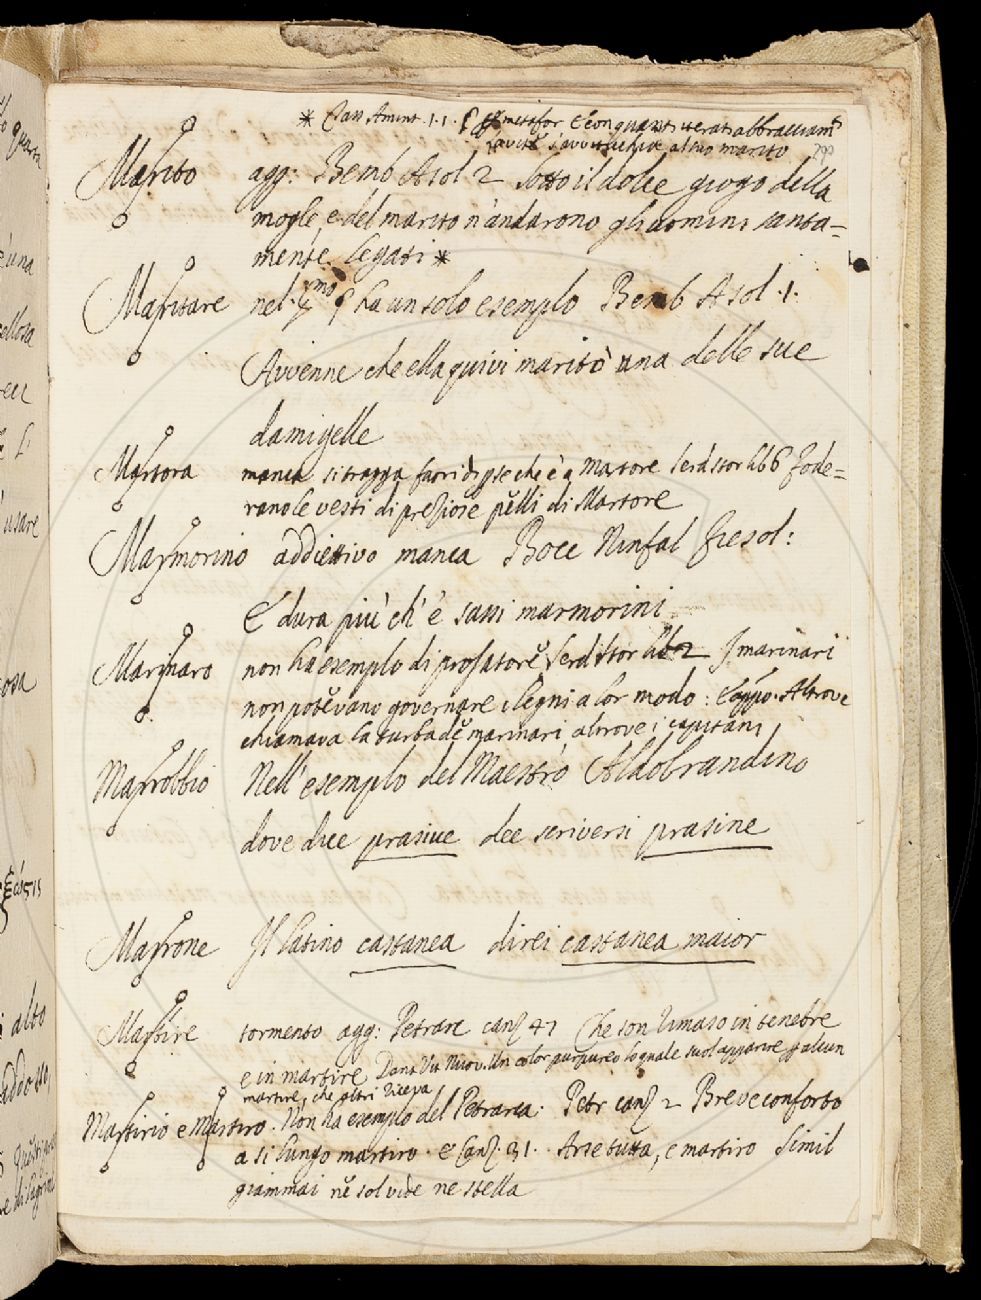 * Tass Amint. 1. 1. p metafor E con quanti iterati abbracciam.
la vite s'avviticchia al suo marito
Marito agg: Bemb Asol 2 Sotto il dolce giogo della
mogle, e del marito n'andarono gli uomini santa=
mente legati *
Maritare nel . p.mo § ha un solo esempio Bemb Asol . 1.
Avvenne che ella quivi maritò una delle sue
damigelle
Martora manca si tragga fuori di pse che è a Martore Serd stor lib 6 Fode=
rano le vesti di preziose pelli di Martore
Marmorino addiettivo manca Bocc Ninfal fiesol:
E dura più ch' e' sassi marmorini
Marinaro non ha esempio di prosatore Serd stor lib 2 I marinari
non potevano governare i legni a lor modo: E app.o Altrove
chiamava la turba de marinari altrove i capitani
Marrobbio Nell' esempio del Maestro Aldobrandino
dove dice prasiue dee scriversi prasine
Marrone Il latino castanea direi castanea maior
Martire tormento agg: Petrarc canz 47 Che son rimaso in tenebre
e in martire Dant Vit Nuov. Un color purpureo lo quale suol apparire p alcun
martire, che altri riceva
Martirio e Martiro . Non ha esempio del Petrarca. Petr canz 2 Breve conforto
a sì lungo martiro . E Canz. 31. Arse tutta, e martiro Simil
giammai ne sol vide ne stella